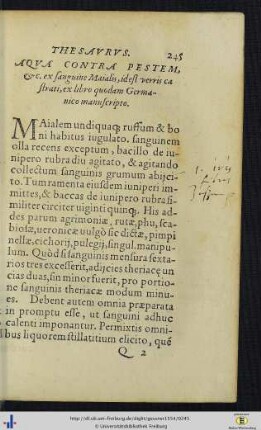 THESAVRVS. 245
AQVA CONTRA PESTEM,
&c. ex sanguine Maialis, idest verris ca
strati, ex libro quodam Germa-
nico manuscripto.
MAialem undiquaq; ruffum & bo
ni habitus iugulato. sanguinem
olla recens exceptum, bacillo de iu-
nipero rubra diu agitato, & agitando
collectum sanguinis grumum abijci-
to. Tum ramenta eiusdem iuniperi im-
mittes, & baccas de iunipero rubra si-
militer circiter uiginti quinq;. His ad-
des parum agrimoniæ, rutæ, phu, sca-
biosæ, ueronicæ uulgò sic dictæ, pimpi
nellæ, cichorij, pulegij, singul. manipu-
lum. Quòd si sanguinis mensura sexta-
rios tres excesserit, adijcies theriacæ un
cias duas, sin minor fuerit, pro portio-
ne sanguinis theriacæ modum minu-
es. Debent autem omnia præparata
in promptu esse, ut sanguini adhuc
calenti imponantur. Permixtis omni-
bus liquorem stillatitium elicito, qué
Q 2
http://dl.ub.uni-freiburg.de/diglit/gessner1554/0245
© Universitätsbibliothek Freiburg